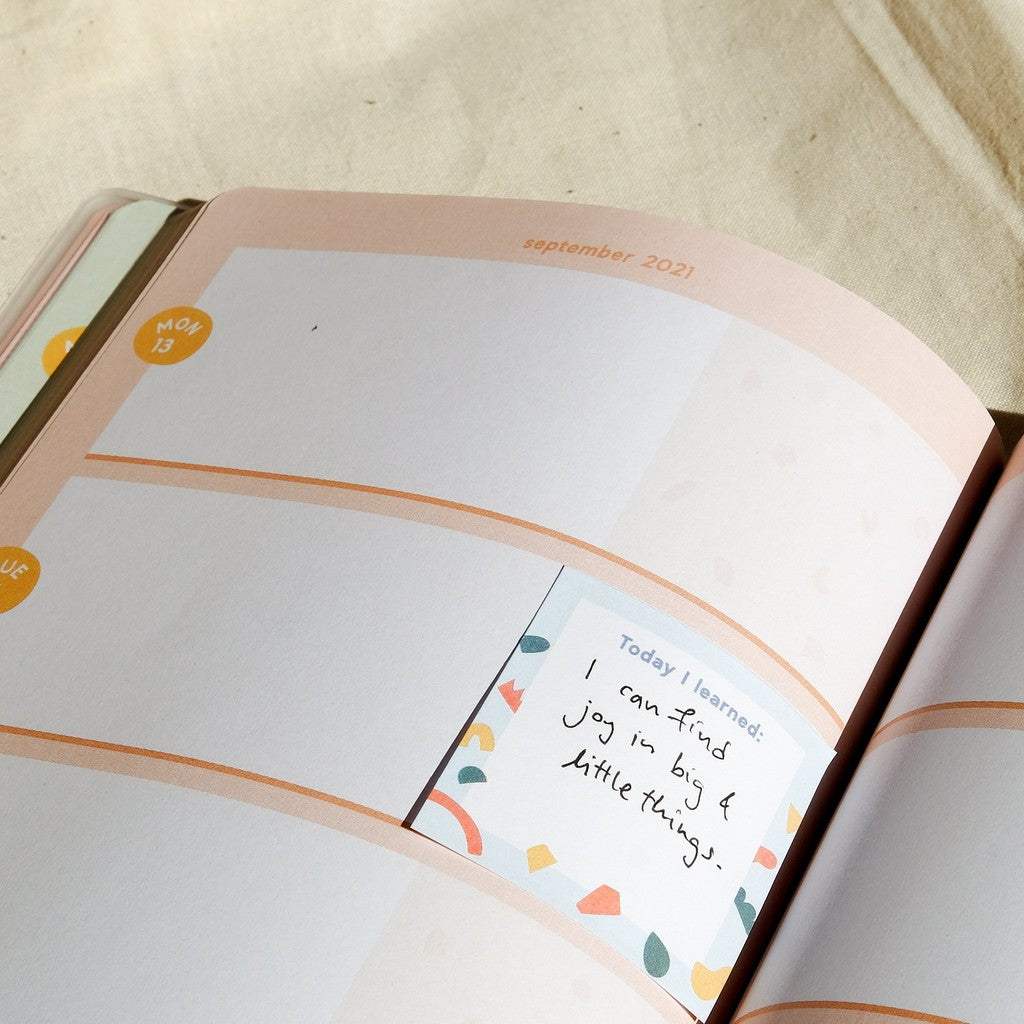 september 2021
MON
13
UE
Today I learned:
I can find
joy in big &
little things.